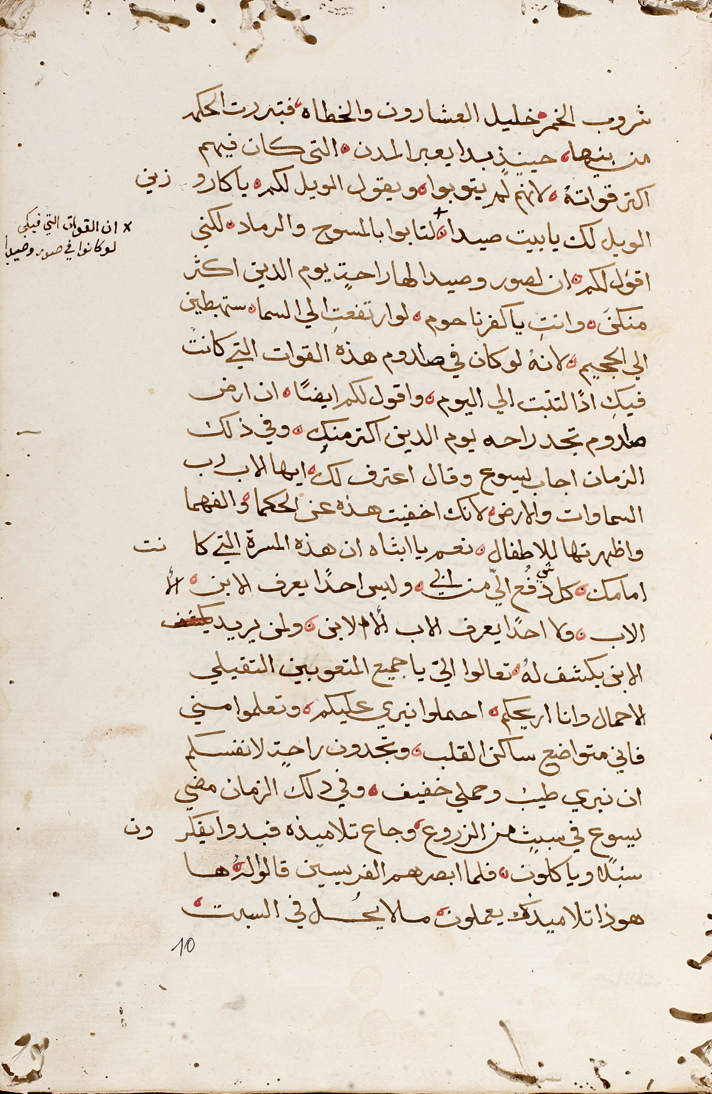 شروب الخمر خليل العشارون والخطاه فتبررت الحكمه
من بنيها حينيذٍ بدا يعير المدن التي كان فيهم
اكتر قواته لانهم لم يتوبوا ويقول الويل لكم ياكارو زين
الويل لك يابيت صيدا لتابوا بالمسوح والرماد لكني
x ان القوات التي فيكي
لو كانوا في صور وصيدا
اقول لكم ان لصور وصيدا لها راحةٍ يوم الدين اكثر
منكن وانتِ ياكفرناحوم لو ارتفعتِ الي السما ستهبطين
الي الجحيم لانهُ لو كان في صادوم هذه القوات التي كانت
فيكِ اذًا لتبتت الي اليوم واقول لكم ايضًا ان ارض
صادوم تجد راحه يوم الدين اكتر منكِ وفي ذلك
الزمان اجاب يسوع وقال اعترف لك ايها الاب رب
السماوات والارض لانك اخفيت هذه عن الحكما والفهما
واظهرتها للاطفال نعم يا ابتاه ان هذه المسرة التي كا نت
امامك كل شي دُفع اليّ من ابي وليس احدًا يعرف الابن الا
الاب ولا احدًا يعرف الاب الا الابن ولمن يريد
الابن يكشف لهُ تعالوا اليّ يا جميع المتعوبين التقيلي
الاحمال وانا اريحكم احملوا نيري عليكم وتعلموا مني
فاني متواضع ساكن القلب وتجدون راحةٍ لانفسكم
ان نيري طيبٌ وحملي خفيف وفي دلك الزمان مضي
يسوع في سبتٍ من الزروع وجاع تلاميذه فبدوا يفكر ون
سنبلاً وياكلون فلما ابصرهم الفريسين قالوا لهُ ها
هوذا تلاميذك يعملون ما لا يحل في السبت
10